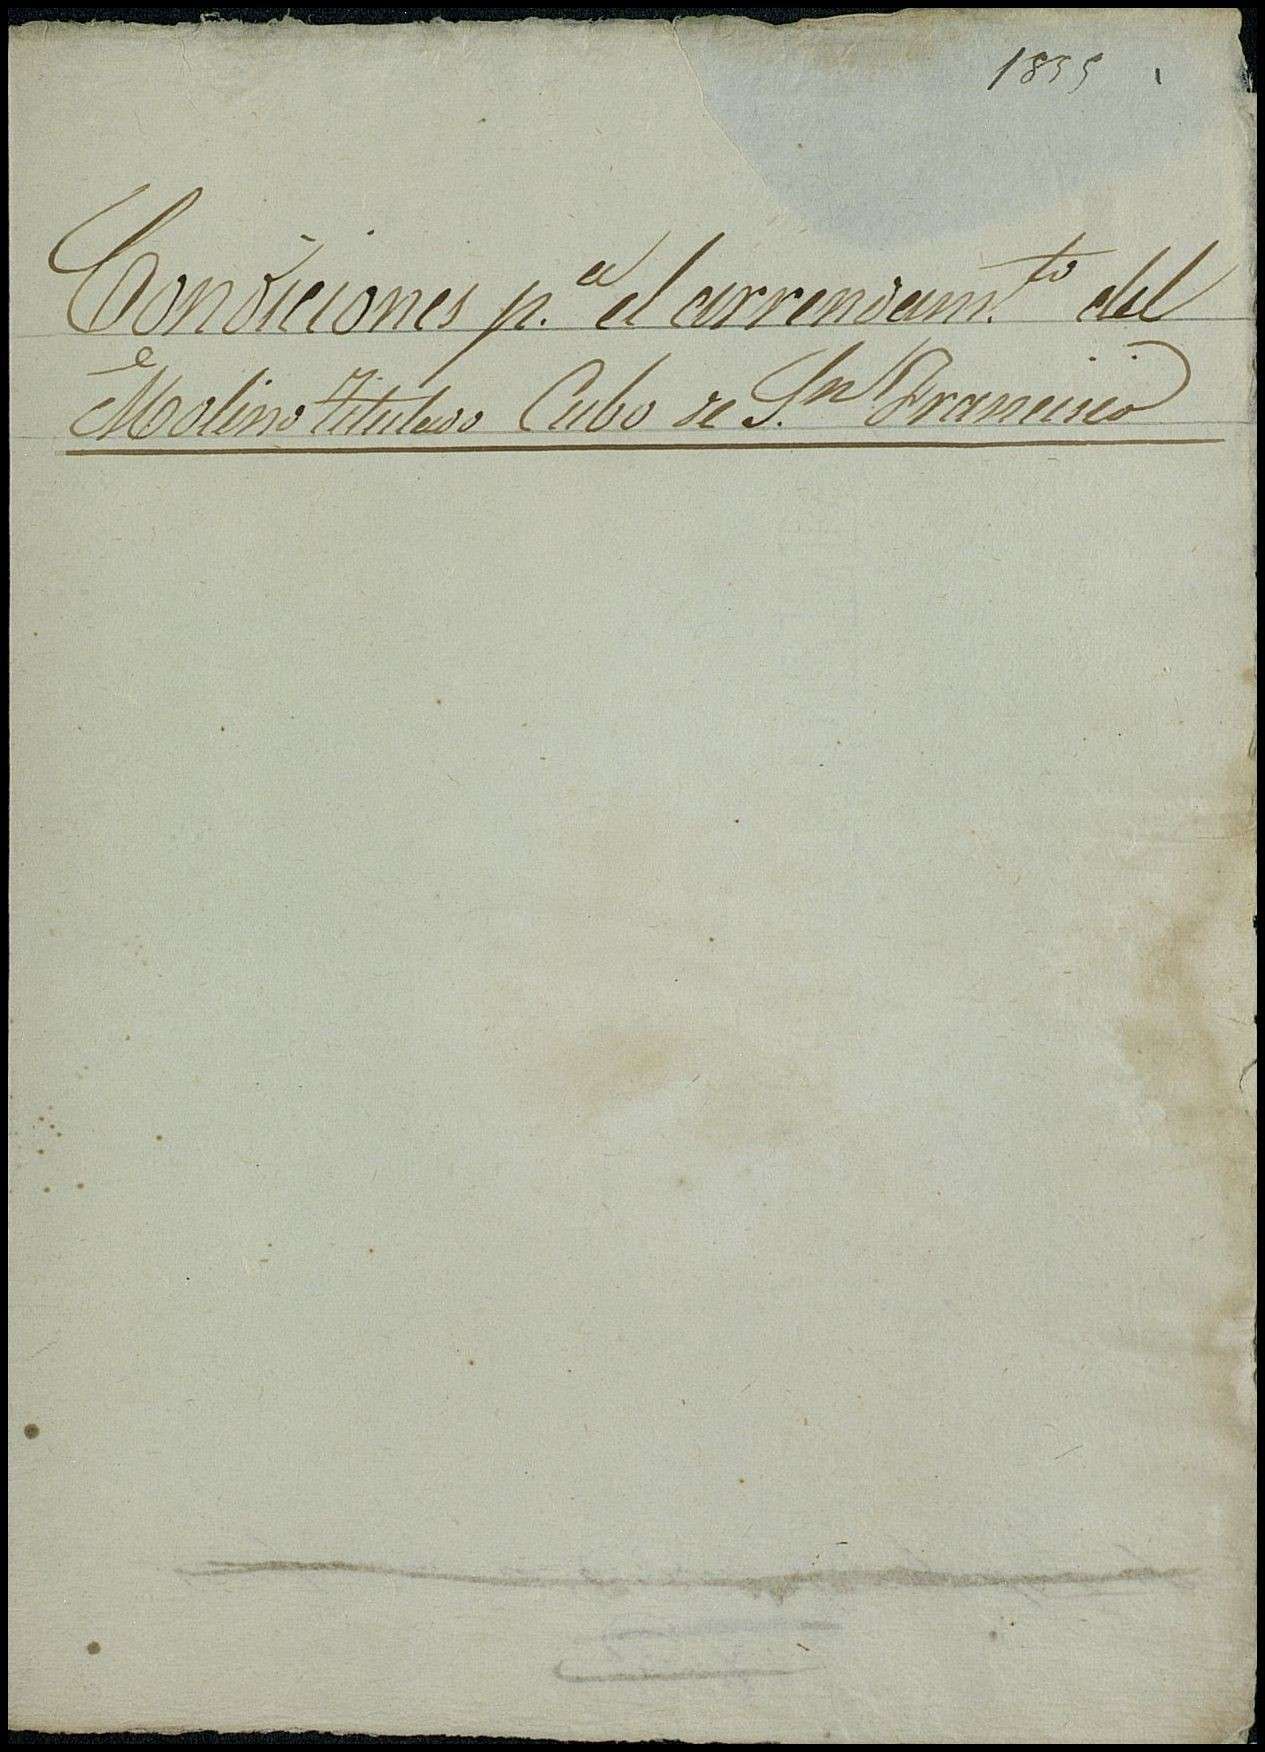 1855
Condiciones p.ª el arrendam.to del
Molino titulado Cubo de S.n Francisco